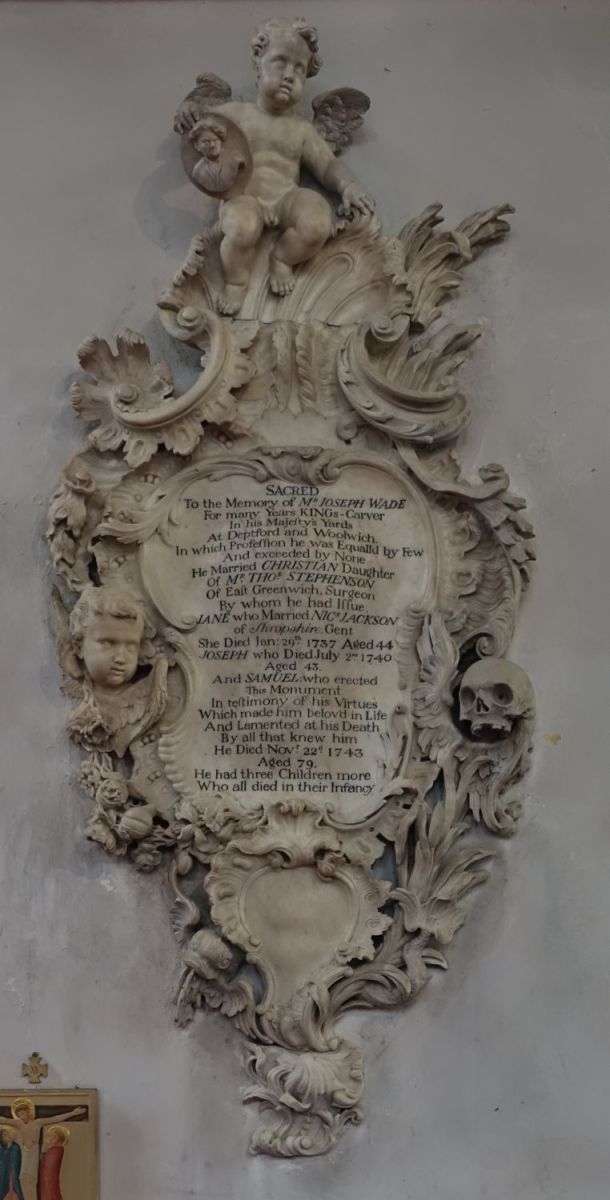 SACRED
To the Memory of Mr. JOSEPH WADE
For many Years KINGs-Carver
In his Majesty's Yards
At Deptford and Woolwich,
In which Profession he was Equall'd by Few
And exceeded by None
He Married CHRISTIAN Daughter
Of Mr. THOs. STEPHENSON
Of East Greenwich, Surgeon
By whom he had Issue.
JANE who Married NICs. JACKSON
of Shropshire, Gent
She Died Jan: 29th 1739 Aged 44
JOSEPH who Died July 2nd 1740
Aged 43.
And SAMUEL who erected
This Monument
In testimony of his Virtues
Which made him belov'd in Life
And Lamented at his Death
By all that knew him
He Died Novr. 22d 1743
Aged 79.
He had three Children more
Who all died in their Infancy